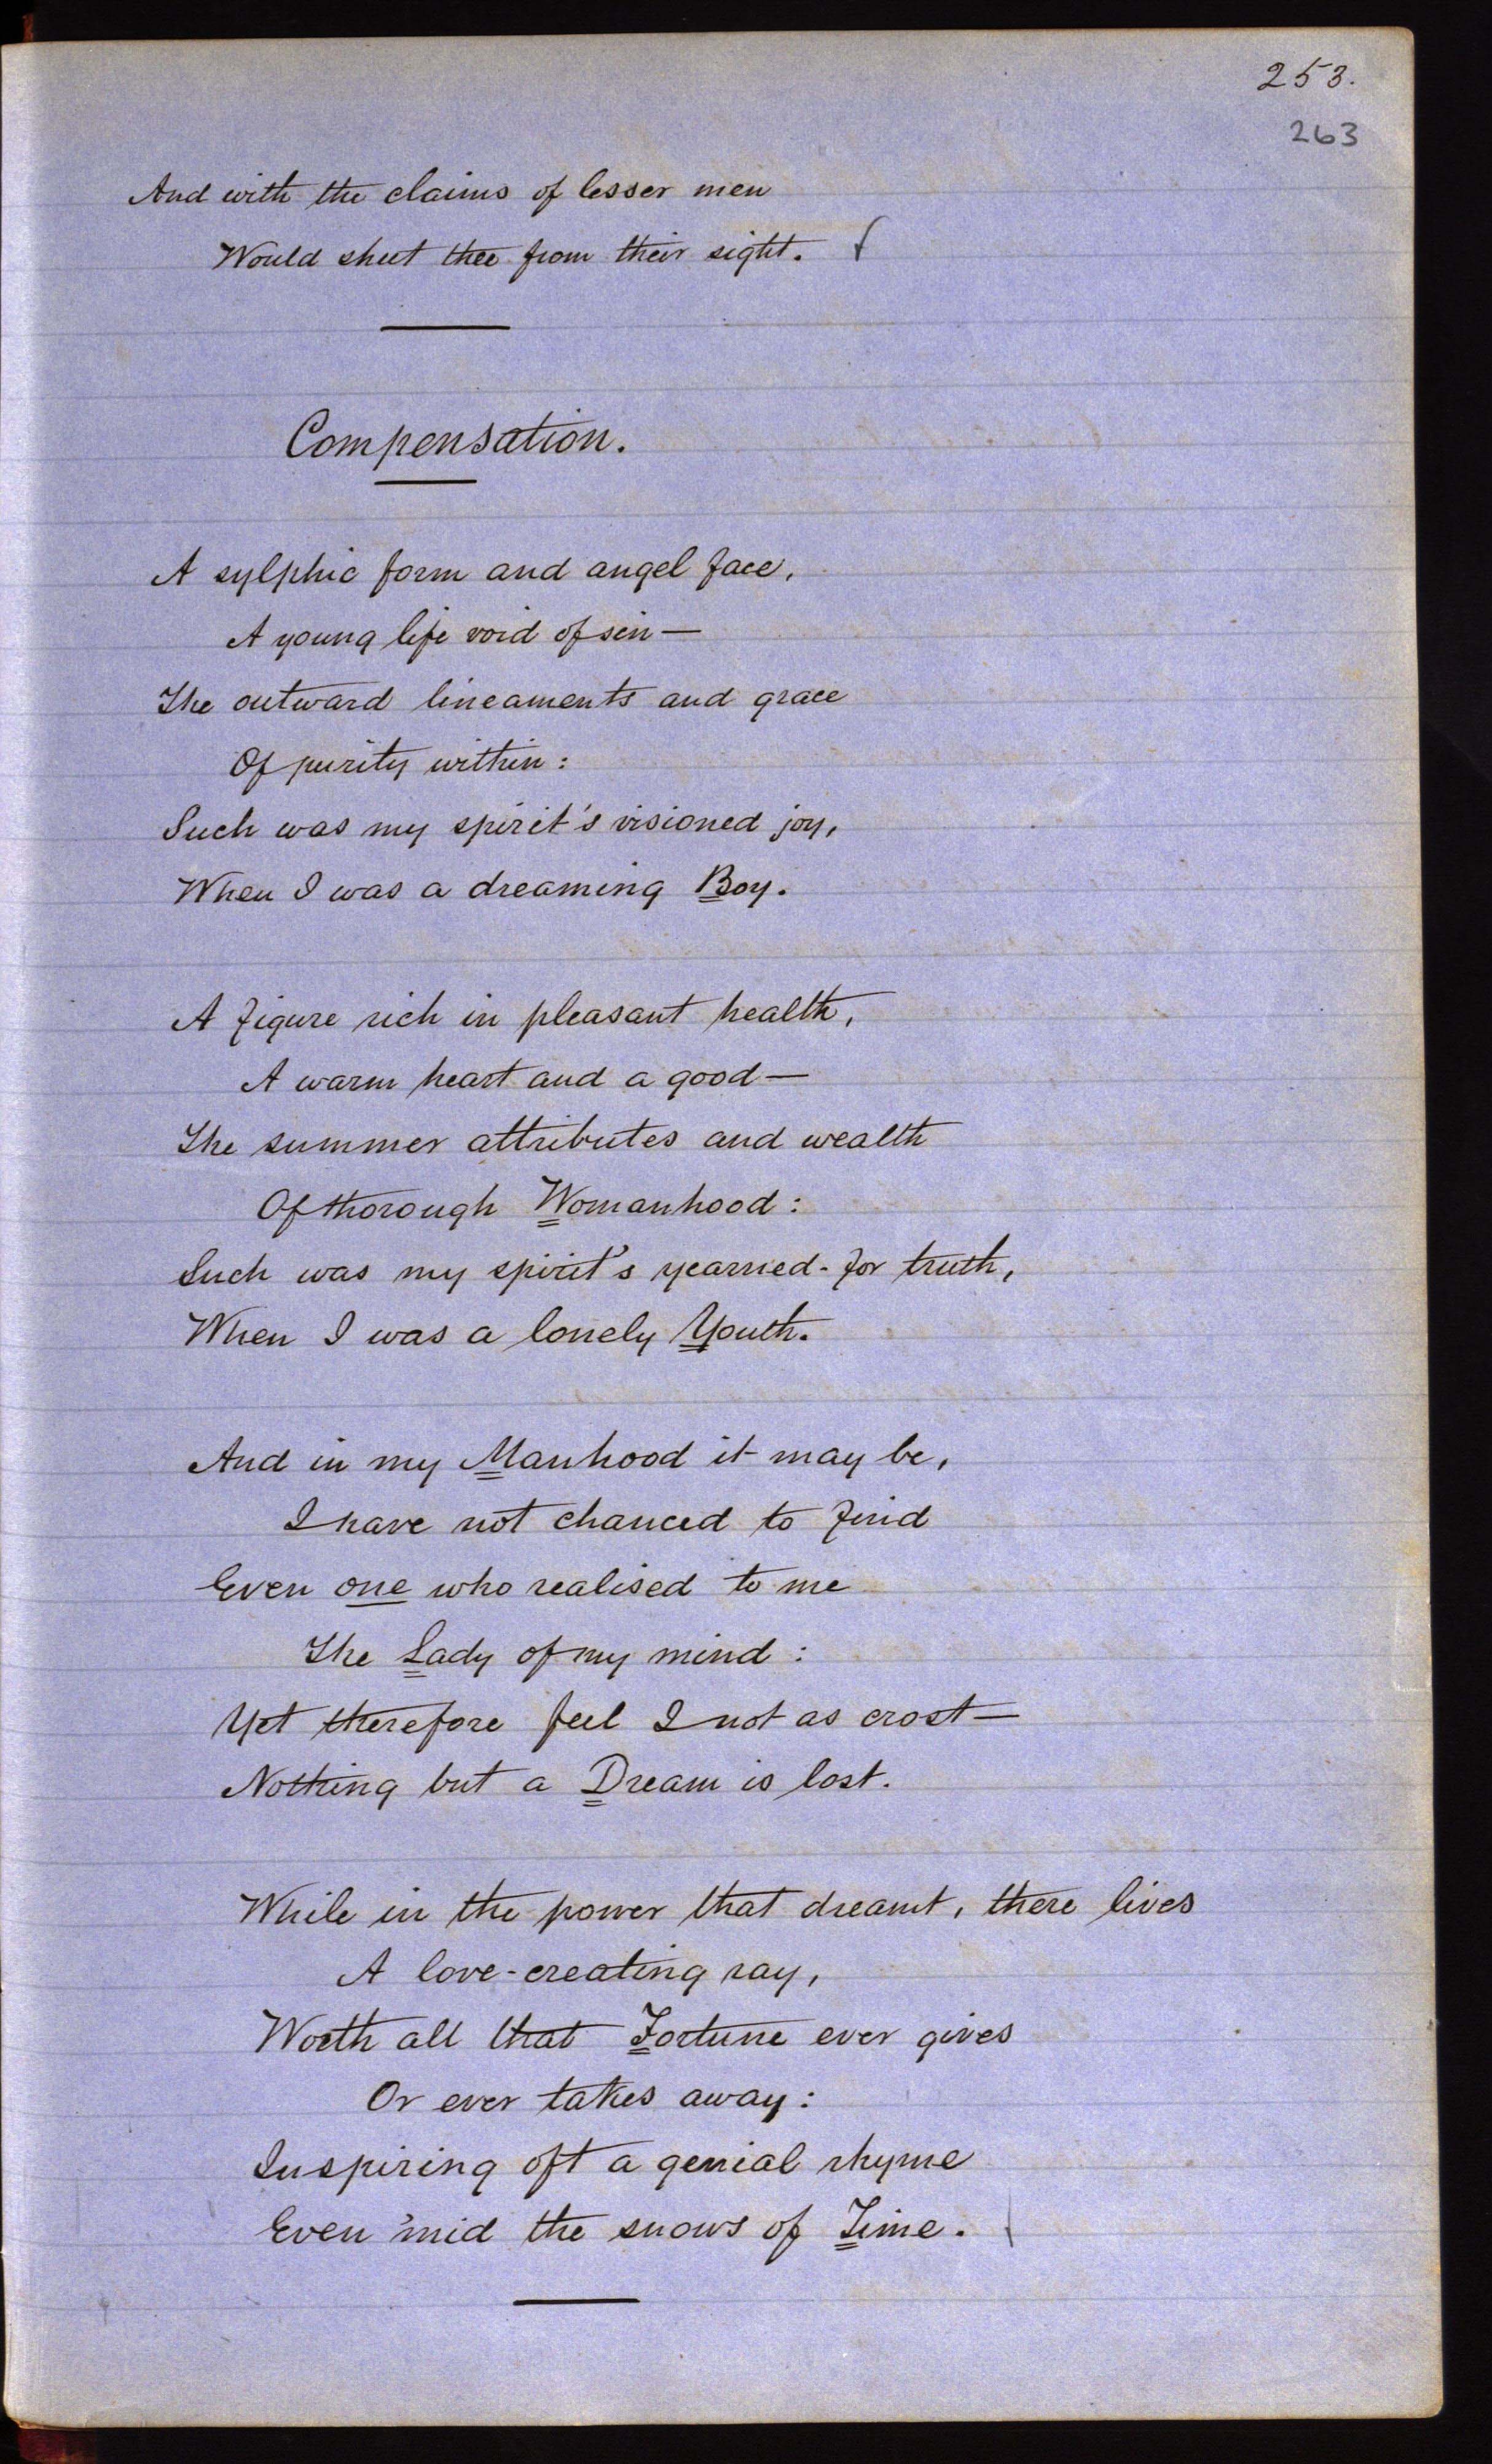 253.
263
And with the claims of lesser men
Would shut thee from their sight.
Compensation.
A sylphic form and angel face,
A young life void of sin—
The outward lineaments and grace
Of purity within:
Such was my spirit's visioned joy,
When I was a dreaming Boy.
A figure rich in pleasant health,
A warm heart and a good—
The summer attributes and wealth
Of thorough Womanhood:
Such was my spirit's yearned-for truth,
When I was a lonely Youth.
And in my Manhood it may be,
I have not chanced to find
Even one who realised to me
The Lady of my mind:
Yet therefore feel I not as crost—
Nothing but a Dream is lost.
While in the power that dreamt, there lives
A love-creating ray,
Worth all that Fortune ever gives
Or ever takes away:
Inspiring oft a genial rhyme
Even 'mid the snows of Time.